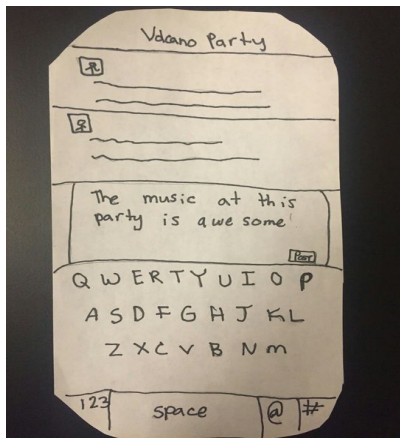 Volcano Party
The music at this
party is awesome!
Post
Q W E R T Y U I O P
A S D F G H J K L
Z X C V B N m
123 space @ #